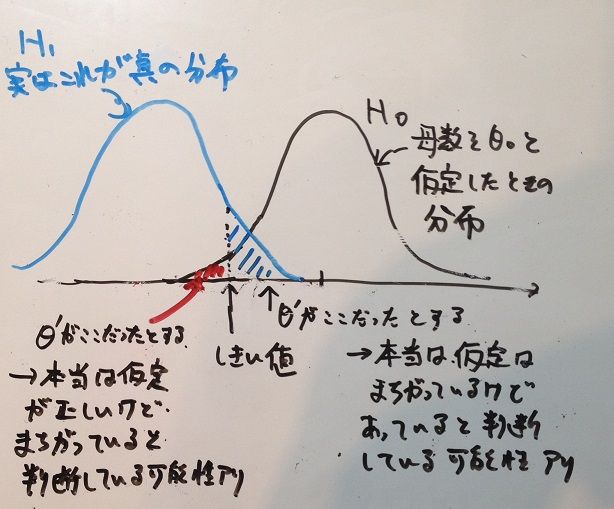 H₁
実はこれが真の分布
H₀
母数をθ₀と
仮定したときの
分布
θ'がここだったとする
→本当は仮定
が正しいけど
まちがっていると
判断している可能性アリ
しきい値
θ'がここだったとする
→本当は仮定は
まちがっているけど
あっていると判断
している可能性アリ